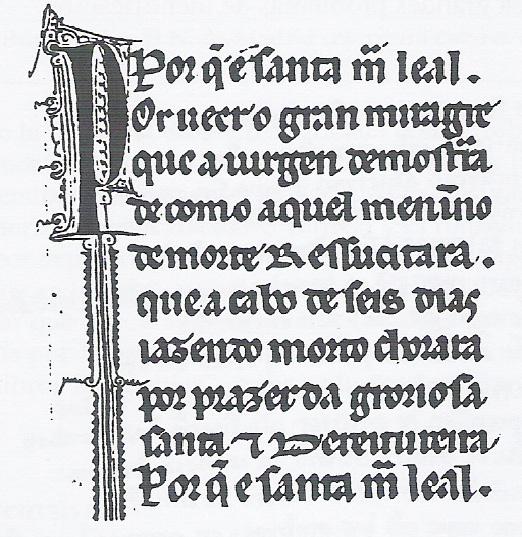 Por q̃ e santa m̃ leal.
Por ueer o gran miragre
que a uirgen demostr̃a
de como aquel menĩno
de morte Ressucitara.
que a cabo de seis dias
iazendo morto chorara
por prazer da groriosa
santa ⁊ Dereitureira
Por q̃ e santa m̃ leal.